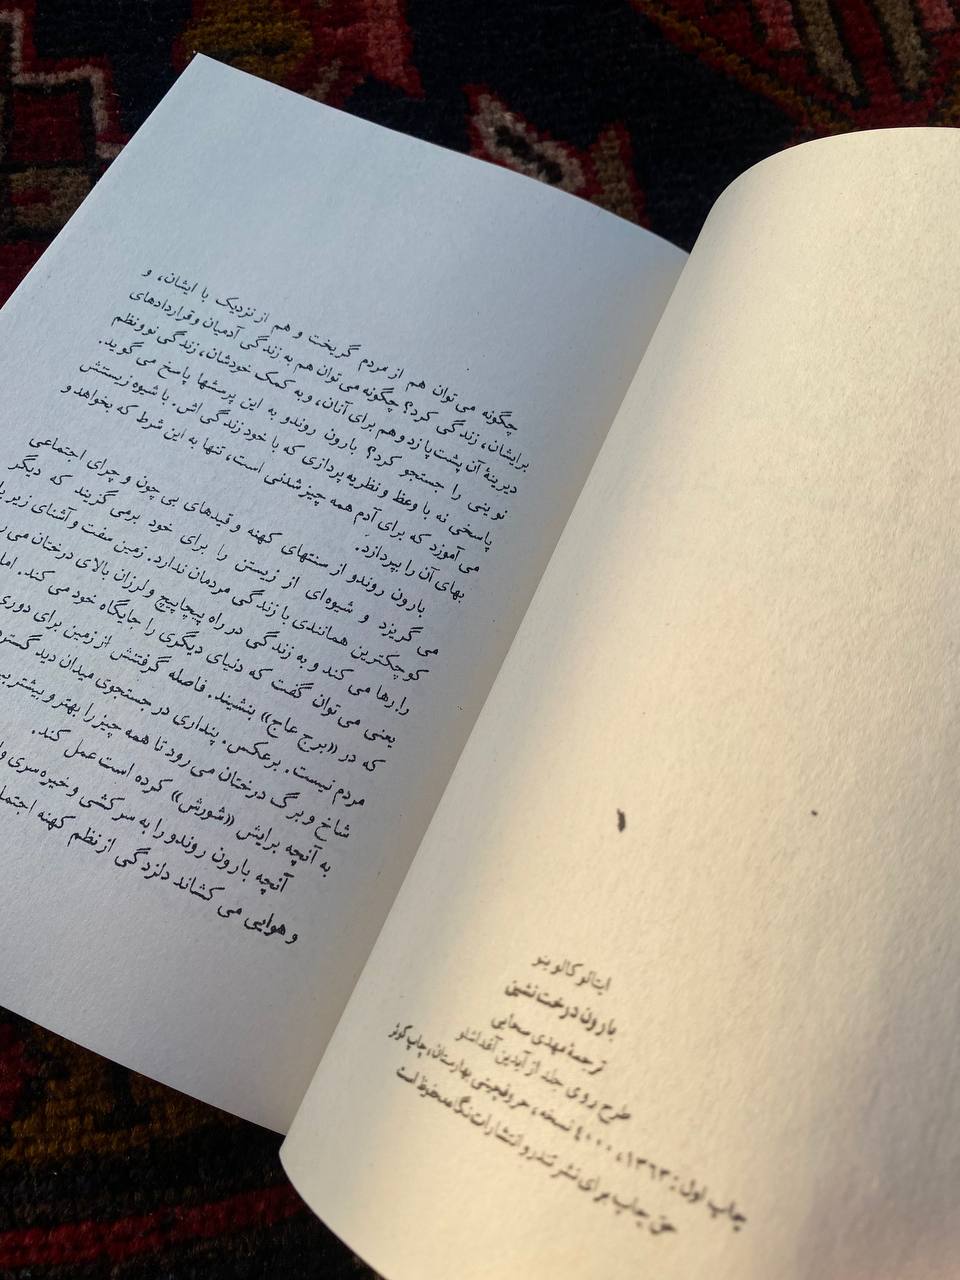 ایتالو کالوینو
بارون درخت‌نشین
ترجمهٔ مهدی سحابی
طرح روی جلد از آیدین آغداشلو
چاپ اول: ۱۳۶۳، ۴۰۰۰ نسخه، حروفچینی بهارستان، چاپ کوثر
حق چاپ برای نشر تندر و انتشارات نگاه محفوظ است
چگونه می‌توان هم از مردم گریخت و هم از نزدیک با ایشان، و
برایشان، زندگی کرد؟ چگونه می‌توان هم به زندگی آدمیان و قراردادهای
دیرینهٔ آن پشت‌پا زد و هم برای آنان، و به کمک خودشان، زندگی نو و نظم
نوینی را جستجو کرد؟ بارون روندو به این پرسشها پاسخ می‌گوید.
پاسخی نه با وعظ و نظریه‌پردازی که با خود زندگی‌اش. با شیوه زیستنش
می‌آموزد که برای آدم همه چیز شدنی است، تنها به این شرط که بخواهد و
بهای آن را بپردازد.
بارون روندو از سنتهای کهنه و قیدهای بی چون و چرای اجتماعی
می‌گریزد و شیوه‌ای از زیستن را برای خود برمی‌گزیند که دیگر
کوچکترین همانندی با زندگی مردمان ندارد. زمین سفت و آشنای زیر
را رها می‌کند و به زندگی در راه پیچاپیچ و لرزان بالای درختان می
یعنی می‌توان گفت که دنیای دیگری را جایگاه خود می‌کند. اما
که در «برج عاج» بنشیند. فاصله گرفتنش از زمین برای دوری
مردم نیست. برعکس. پنداری در جستجوی میدان دید
شاخ و برگ درختان می‌رود تا همه چیز را بهتر و بیشتر
به آنچه برایش «شورش» کرده است عمل کند.
آنچه بارون روندو را به سرکشی و خیره‌سری
و هوایی می‌کشاند دلزدگی از نظم کهنه